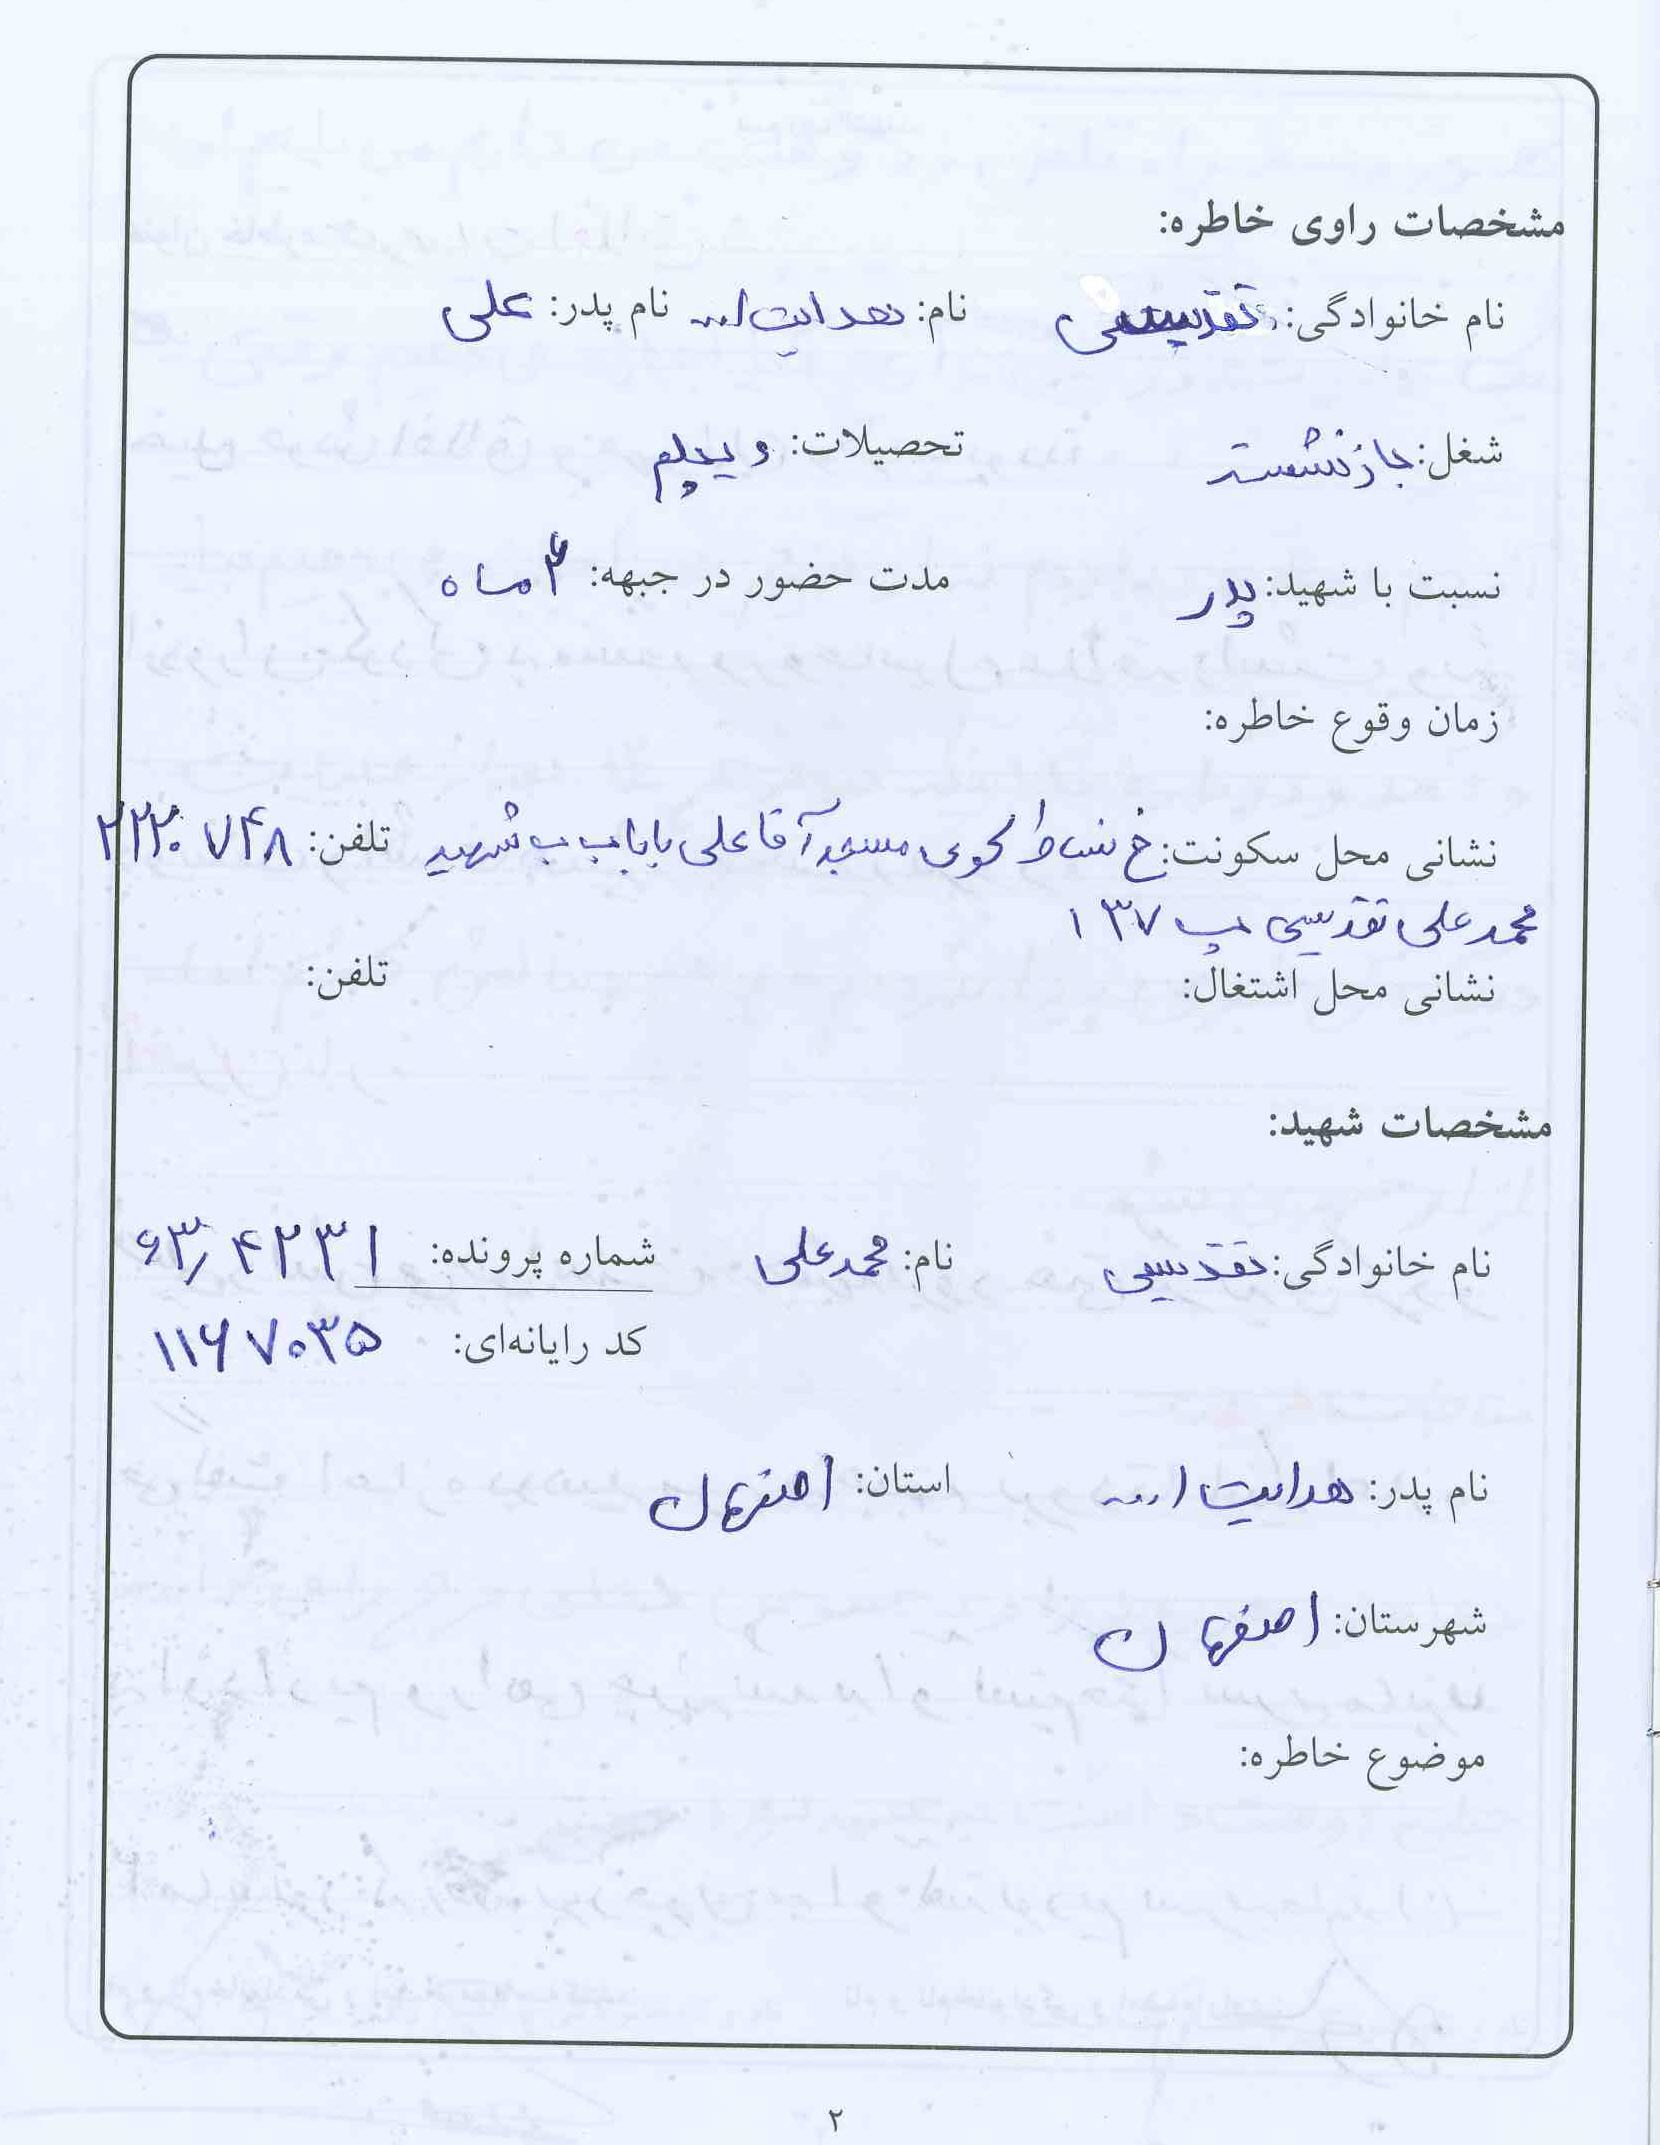 مشخصات راوی خاطره:
نام خانوادگی: تقدیسی نام: هدایت ا... نام پدر: علی
شغل: بازنشسته تحصیلات: دیپلم
نسبت با شهید: پدر مدت حضور در جبهه: ۲ ماه
زمان وقوع خاطره:
نشانی محل سکونت: خ نشاط کوی مسجد آقا علی بابا ب ب شهید تلفن: ۲۲۲۰۷۴۸
محمد علی تقدیسی پ ۱۳۷
نشانی محل اشتغال: تلفن:
مشخصات شهید:
نام خانوادگی: تقدیسی نام: محمد علی شماره پرونده: ۶۳٫۴۲۳۱
کد رایانه‌ای: ۱۱۶۷۰۳۵
نام پدر: هدایت ا... استان: اصفهان
شهرستان: اصفهان
موضوع خاطره:
۲